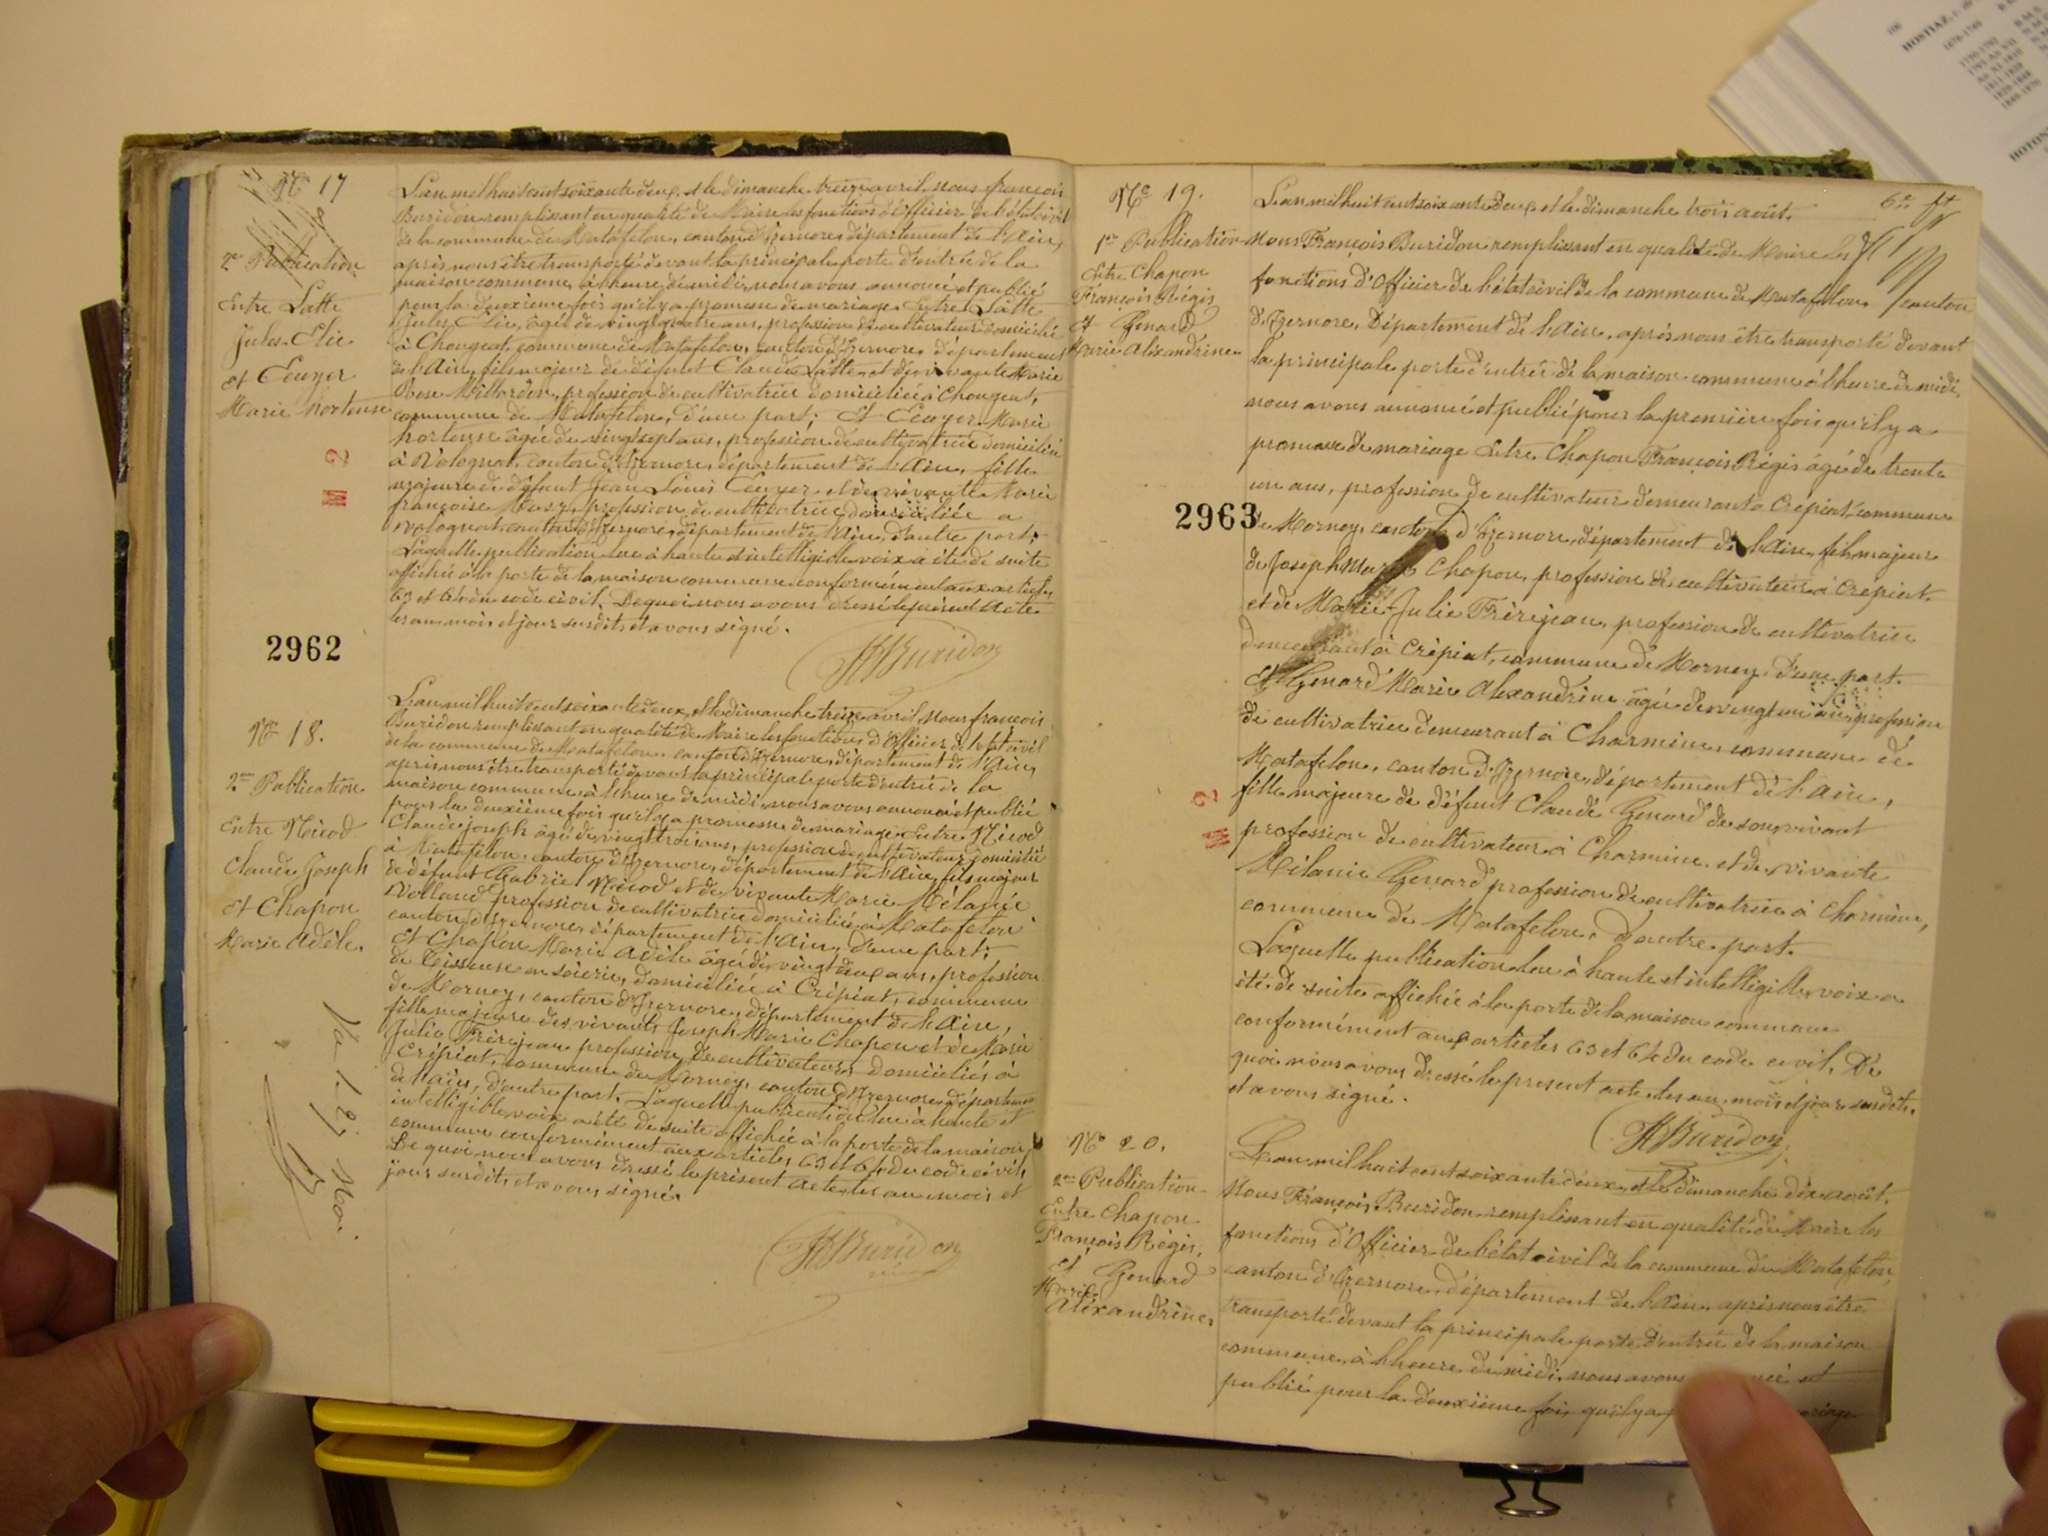 No 17
2me Publication
Entre Latte
Jules Elie
et Ecuyer
Marie hortense
L'an mil huit cent soixante deux, et le dimanche treize avril, nous françois
Buridon remplissant en qualité de Maire les fonctions d'officier de l'état civil
de la commune de Matafelon, canton d'Izernore, département de l'Ain,
après nous être transporté devant la principale porte d'entrée de la
maison commune, à l'heure de midi, nous avons annoncé et publié
pour la deuxième fois qu'il y a promesse de mariage. Entre Latte
Jules Elie, âgé de vingt quatre ans, profession de cultivateur domicilié
à Chougeat, commune de Matafelon, canton d'Izernore, département
de l'Ain, fils majeur de défunt Claude Latte et de vivante Marie
Rose profession de cultivatrice domiciliée à Chougeat,
commune de Matafelon, d'une part; Et Ecuyer Marie
hortense âgée de vingt sept ans, profession de cultivatrice domiciliée
à Volognat, canton d'Izernore, département de l'Ain, fille
majeure de défunt Jean Louis Ecuyer et de vivante Marie
françoise profession de cultivatrice domiciliée a
Volognat canton d'Izernore, département de l'Ain, d'autre part,
Laquelle publication lue à haute et intelligible voix a été de suite
affichée à la porte de la maison commune conformément aux articles
63 et 64 du code civil. De quoi nous avons dressé le présent acte
les an, mois et jour susdits, et avons signé.
Buridon
2962
No 18.
2me Publication
Entre Nicod
Claude Joseph
Et Chapon
Marie Adèle.
L'an mil huit cent soixante deux, et le dimanche treize avril, nous françois
Buridon remplissant en qualité de Maire les fonctions d'Officier de l'état civil
de la commune de Matafelon, canton d'Izernore, département de l'Ain,
après nous être transporté devant la principale porte d'entrée de la
maison commune à l'heure de midi, nous avons annoncé et publié
pour la deuxième fois qu'il y a promesse de mariage entre Nicod
Claude joseph âgé de vingt trois ans, profession de cultivateur domicilié
à Matafelon, canton d'Izernore, département de l'Ain, fils majeur
de défunt Gabriel Nicod et de vivante Marie Mélanie
Volland profession de cultivatrice domiciliée à Matafelon
canton d'Izernore, département de l'Ain, d'une part;
Et Chapon Marie Adèle âgée de vingt deux ans, profession
de Tisseuse en soierie, domiciliée à Crépiat, commune
de Mornay, canton d'Izernore, département de l'Ain,
fille majeure des vivants Joseph Marie Chapon et de Marie
Julie Frèrejean profession de cultivateurs domiciliés à
Crépiat, commune de Mornay, canton d'Izernore département
de l'Ain, d'autre part. Laquelle publication lue à haute et
intelligible voix a été de suite affichée à la porte de la maison
commune conformément aux articles 63 et 64 du code civil,
De quoi nous avons dressé le présent acte, les an mois et
jour susdits, et avons signé.
Buridon
6e ft
No 19.
1re Publication
Entre Chapon
François Régis
Et Genard
Marie Alexandrine
2963
L'an mil huit cent soixante deux et le dimanche trois août.
Nous François Buridon remplissant en qualité de Maire les
fonctions d'Officier de l'état civil de la commune de Matafelon, canton
d'Izernore, Département de l'Ain, après nous être transporté devant
la principale porte d'entrée de la maison commune à l'heure de midi,
nous avons annoncé et publié pour la première fois qu'il y a
promesse de mariage Entre Chapon François Régis âgé de trente
un ans, profession de cultivateur demeurant à Crépiat commune
de Mornay, canton d'Izernore, département de l'Ain, fils majeur
de Joseph Marie Chapon, profession de cultivateur à Crépiat
et de Marie Julie Frèrejean, profession de cultivatrice
demeurant à Crépiat, commune de Mornay, d'une part.
Et Genard Marie Alexandrine âgée de vingt un ans, profession
de cultivatrice demeurant à Charmine, commune de
Matafelon, canton d'Izernore, département de l'Ain,
fille majeure de défunt Claude Genard de son vivant
profession de cultivateur à Charmine et de vivante
Mélanie Genard profession de cultivatrice à Charmine,
commune de Matafelon, d'autre part.
Laquelle publication lue à haute et intelligible voix a
été de suite affichée à la porte de la maison commune
conformément aux articles 63 et 64 du code civil, De
quoi nous avons dressé le présent acte, les an, mois et jour susdits,
et avons signé.
Buridon
No 20.
2me Publication
Entre Chapon
François Régis,
Et Genard
Marie
Alexandrine,
L'an mil huit cent soixante deux, et le dimanche dix août,
Nous François Buridon remplissant en qualité de Maire les
fonctions d'Officier de l'état civil de la commune de Matafelon,
canton d'Izernore, département de l'Ain, après nous être
transporté devant la principale porte d'entrée de la maison
commune, à l'heure de midi, nous avons et
publié pour la deuxième fois qu'il y a
HOSTIAZ